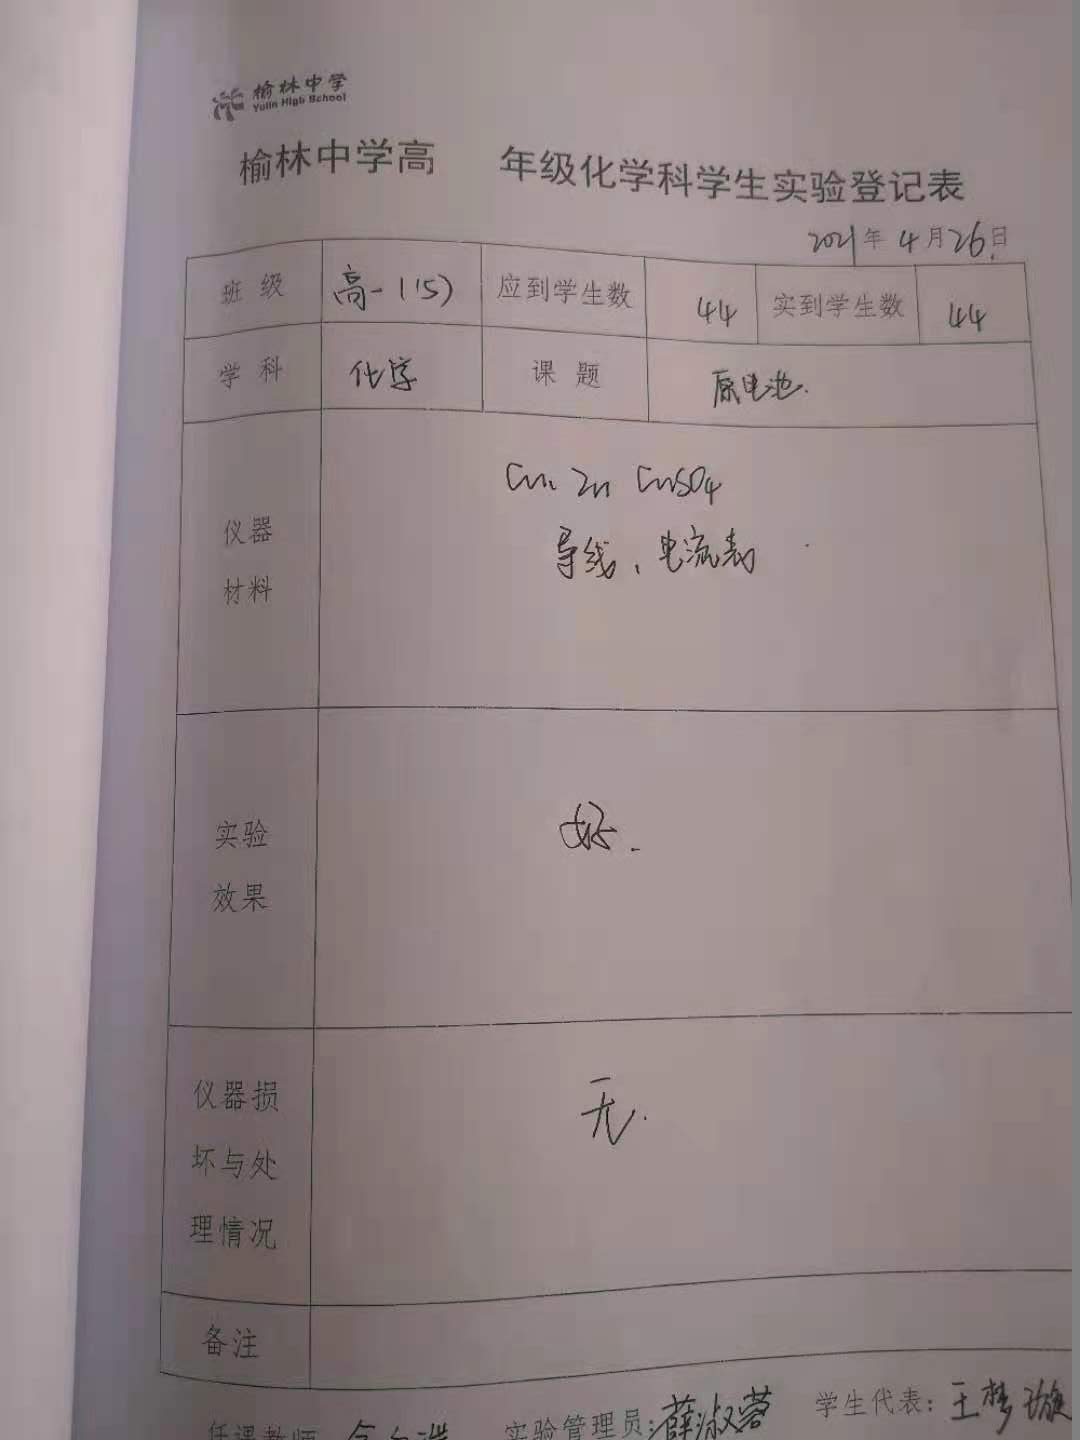 榆林中学
Yulin High School
榆林中学高 年级化学科学生实验登记表
2021年4月26日
班级 高一(15) 应到学生数 44 实到学生数 44
学科 化学 课题 原电池.
仪器
材料
Cu、Zn CuSO4
导线、电流表
实验
效果
好.
仪器损
坏与处
理情况
无.
备注
任课教师 实验管理员:薛淑蓉 学生代表:王梦璇